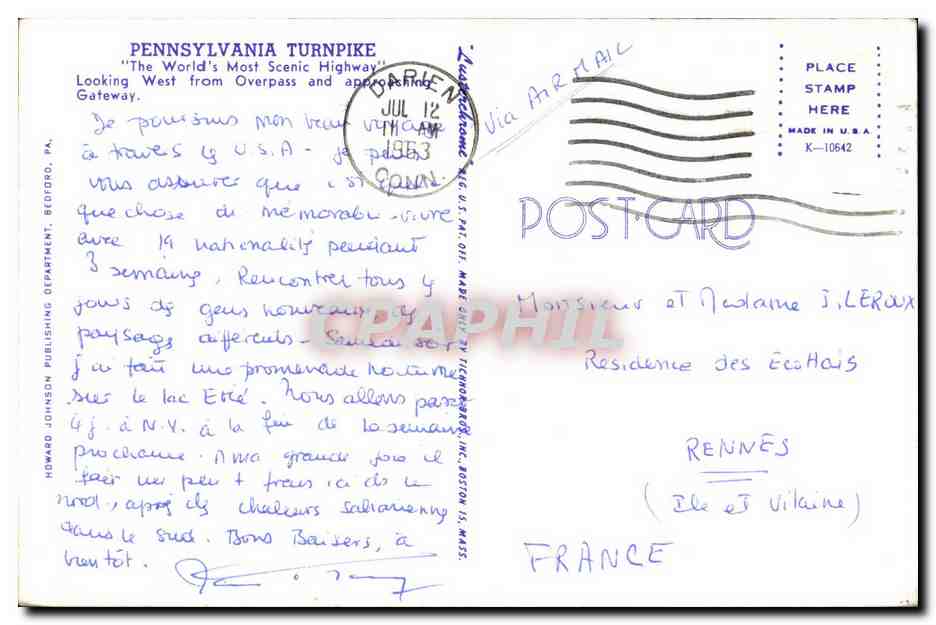 PENNSYLVANIA TURNPIKE
"The World's Most Scenic Highway"
Looking West from Overpass and approaching
Gateway.
Je poursuis mon beau voyage
à travers les U.S.A - je peux
vous assurer que
que chose de mémorable - vivre
avec 19 nationalités pendant
3 semaines, Rencontrer tous les
jours des gens nouveaux, des
paysages différents - Samedi soir
j'ai fait une promenade nocturne
sur le lac Erié. Nous allons passer
4 j. à N.Y. à la fin de la semaine
prochaine. A ma grande joie il
fait un peu + frais ici ds le
nord, après des chaleurs sahariennes
dans le Sud. Bons Baisers, à
bientôt.
HOWARD JOHNSON PUBLISHING DEPARTMENT, BEDFORD, PA.
"Lusterchrome" REG. U.S. PAT. OFF. MADE ONLY BY TICHNOR BROS. INC., BOSTON 15, MASS.
DARIEN
JUL 12
11 AM
1963
CONN.
Via AIR MAIL
PLACE
STAMP
HERE
MADE IN U.S.A
K-10642
POST CARD
Monsieur et Madame J. LEROUX
Residence des
RENNES
(Ile et Vilaine)
FRANCE
CPAPHIL